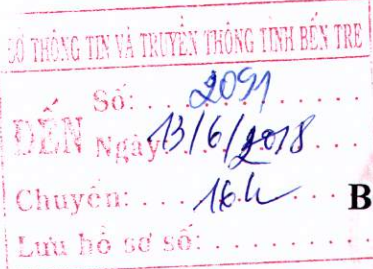 SỞ THÔNG TIN VÀ TRUYỀN THÔNG TỈNH BẾN TRE
Số: . . . 2091 . . . . . .
ĐẾN Ngày 13/6/2018 . . .
Chuyển: . . . . . . . B
Lưu hồ sơ số: . . . . . . . . .